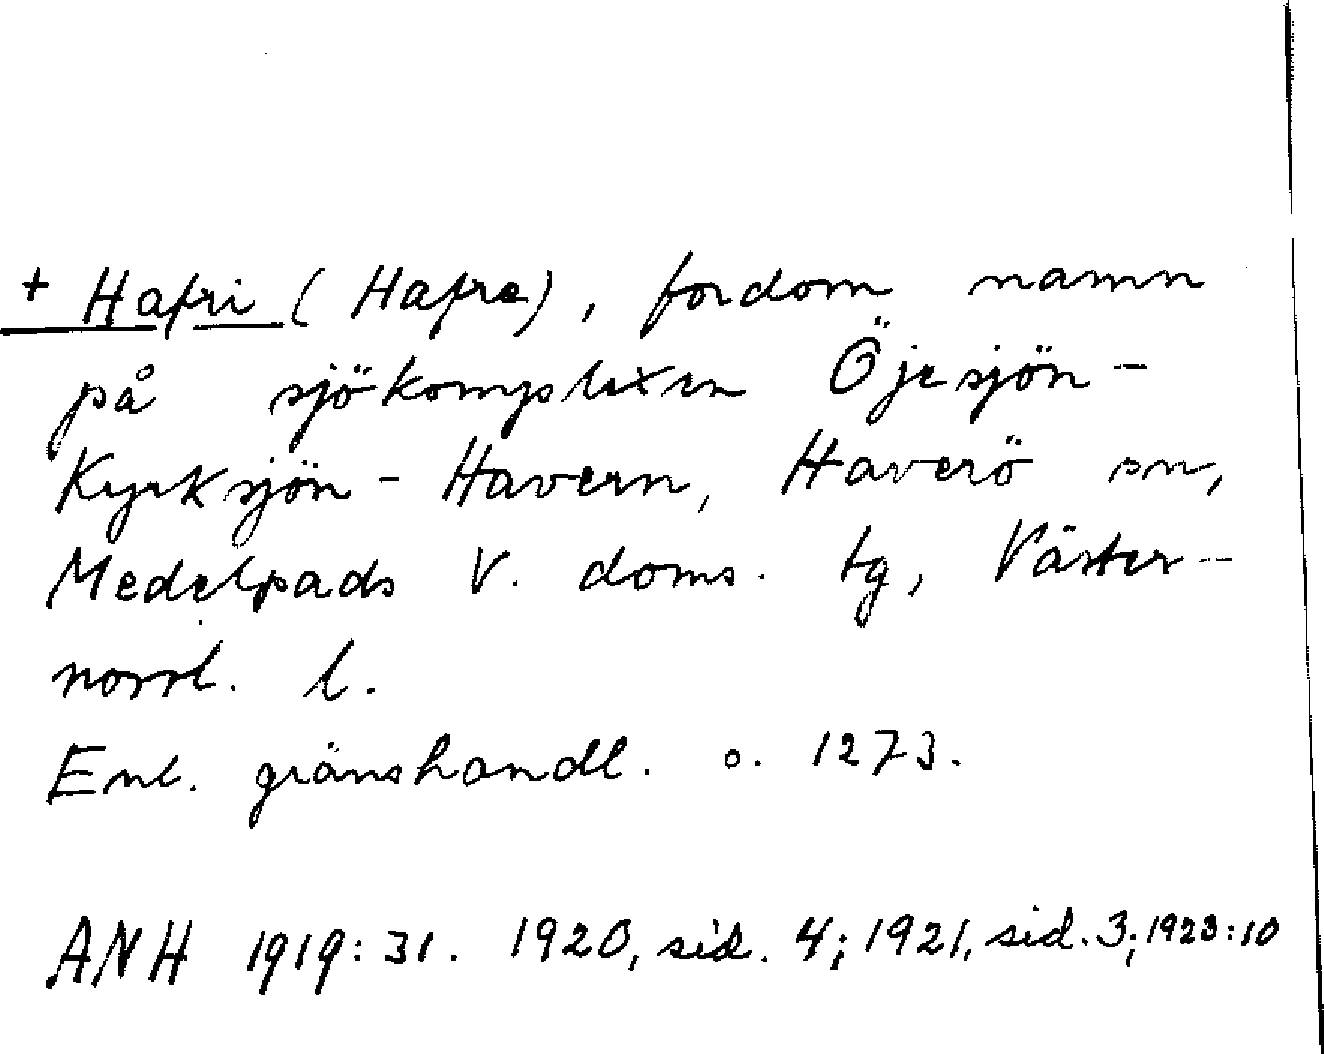 + Hafri (Hafre), fordom namn
på sjökomplexen Öjesjön -
Kyrksjön - Havern, Haverö sn,
Medelpads V. doms. tg, Väster-
norrl. l.
Enl. gränshandl. o. 1273.
ANH 1919:31. 1920, sid. 4; 1921, sid. 3; 1923:10